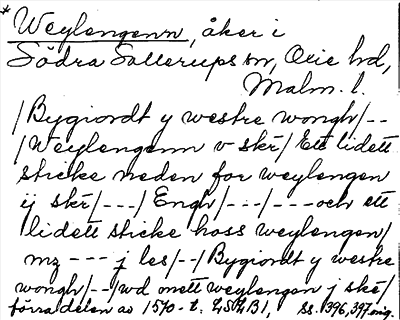 * Weylengenn, åker i
Södra Sallerups sn, Oxie hd,
Malm. l.
/Bygiordt y westre wongh/--
/Weylengenn v skr̄/ Ett lidett
sticke neden for weylengen
ij skr̄/---/Engh/---/---och ett
lidett sticke hoss weylengen/
mz --- j les/--/Bygiordt y westre
wongh/--/wd onett weylengen j skr̄/
förra delen av 1570-t. LSÄB1, ss. 396, 397 orig.